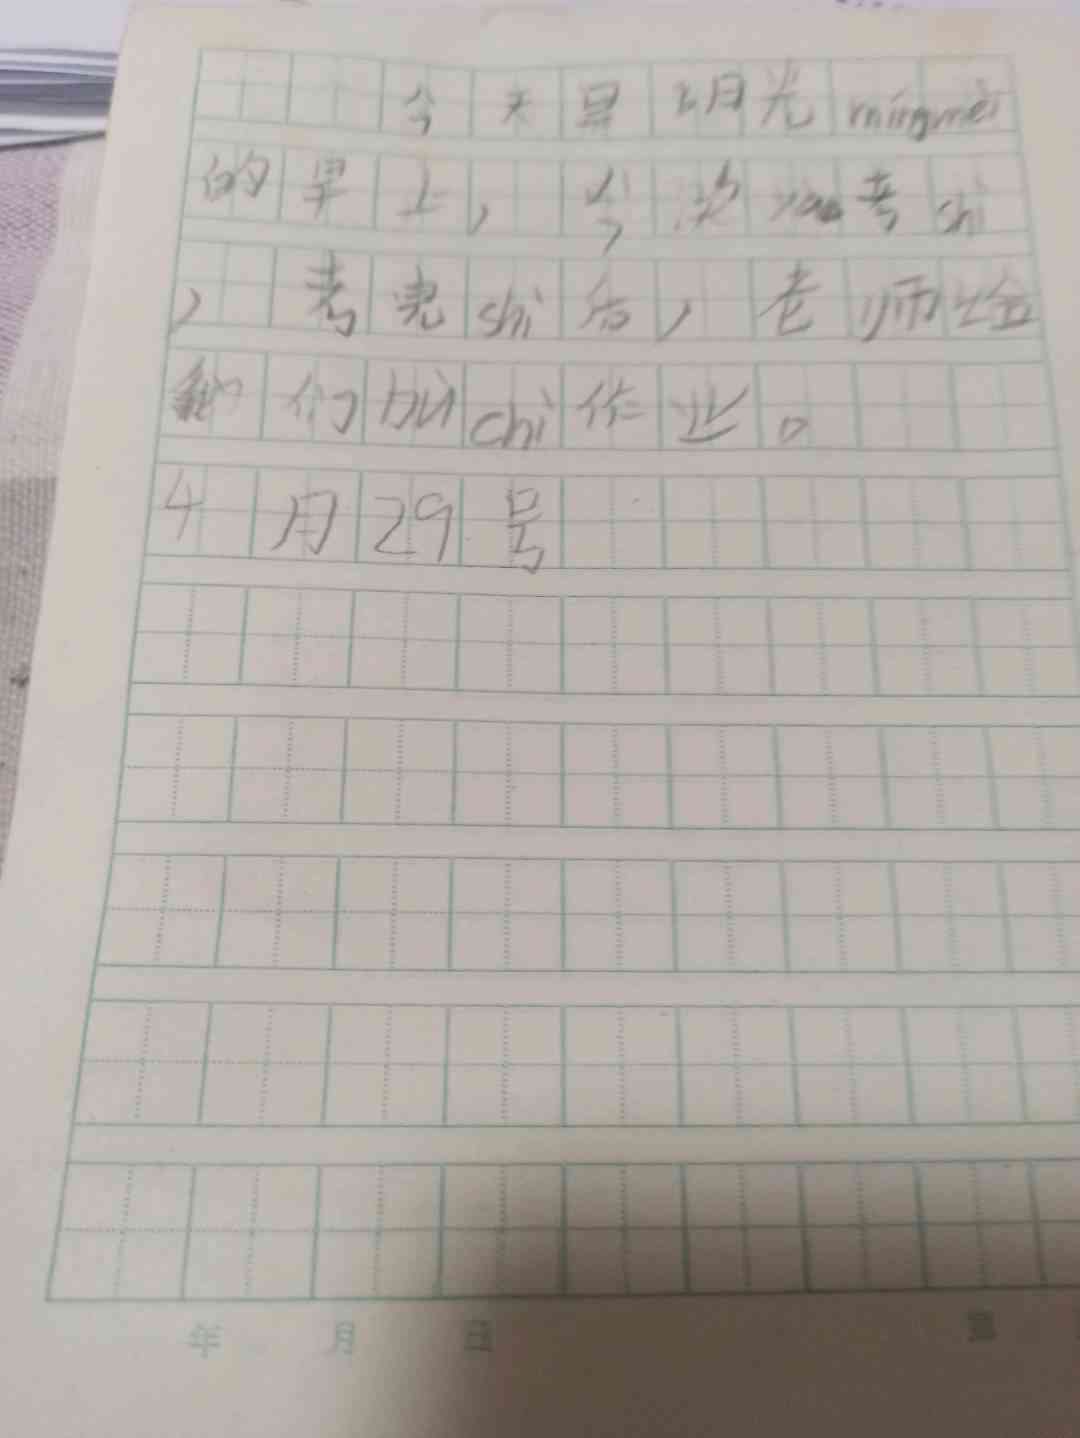 今天是阳光míngmèi
的早上，今次yao考shi
，考完shi后，老师给
我们bùchi作业。
4月29号
年 月 日 第